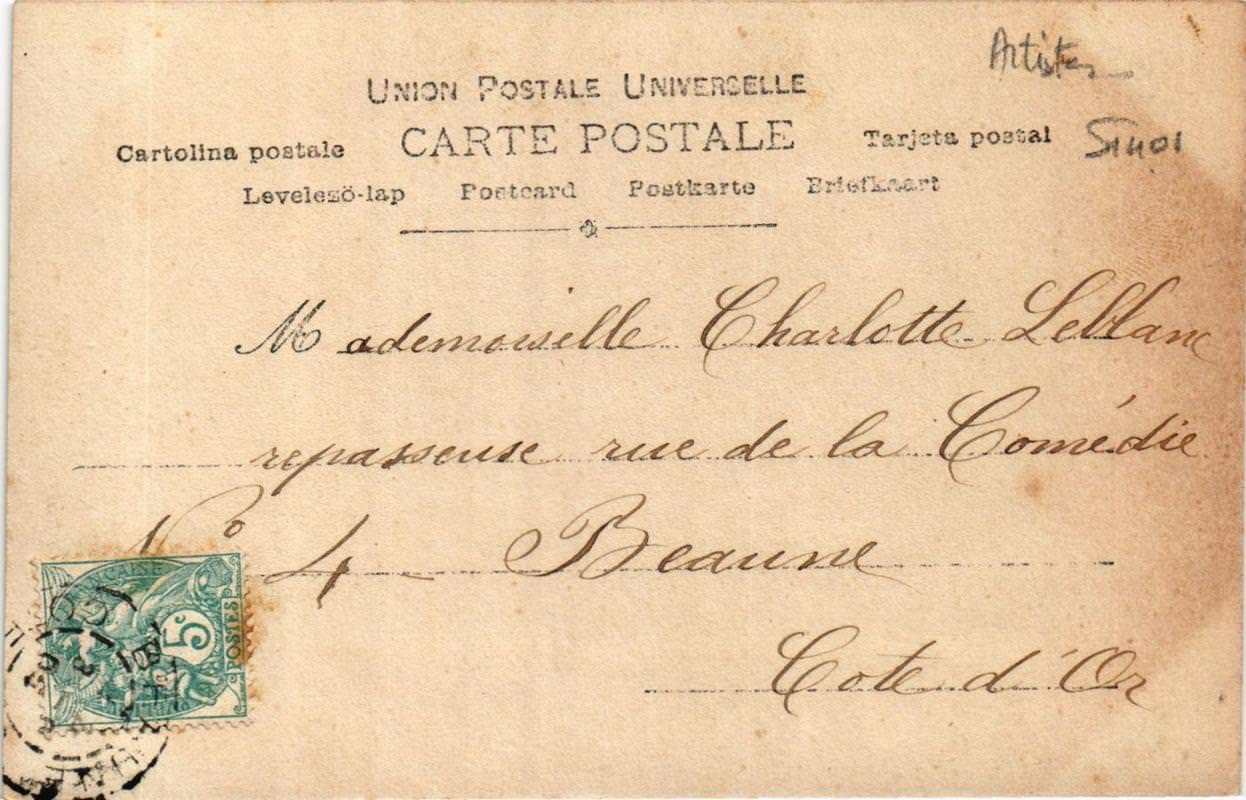 Artistes
UNION POSTALE UNIVERSELLE
Cartolina postale CARTE POSTALE Tarjeta postal
Levelező-lap Postcard Postkarte Briefkaart
Mademoiselle Charlotte Leblanc
repasseuse rue de la Comédie
No 4 Beaune
Cote d'Or
5c
POSTES